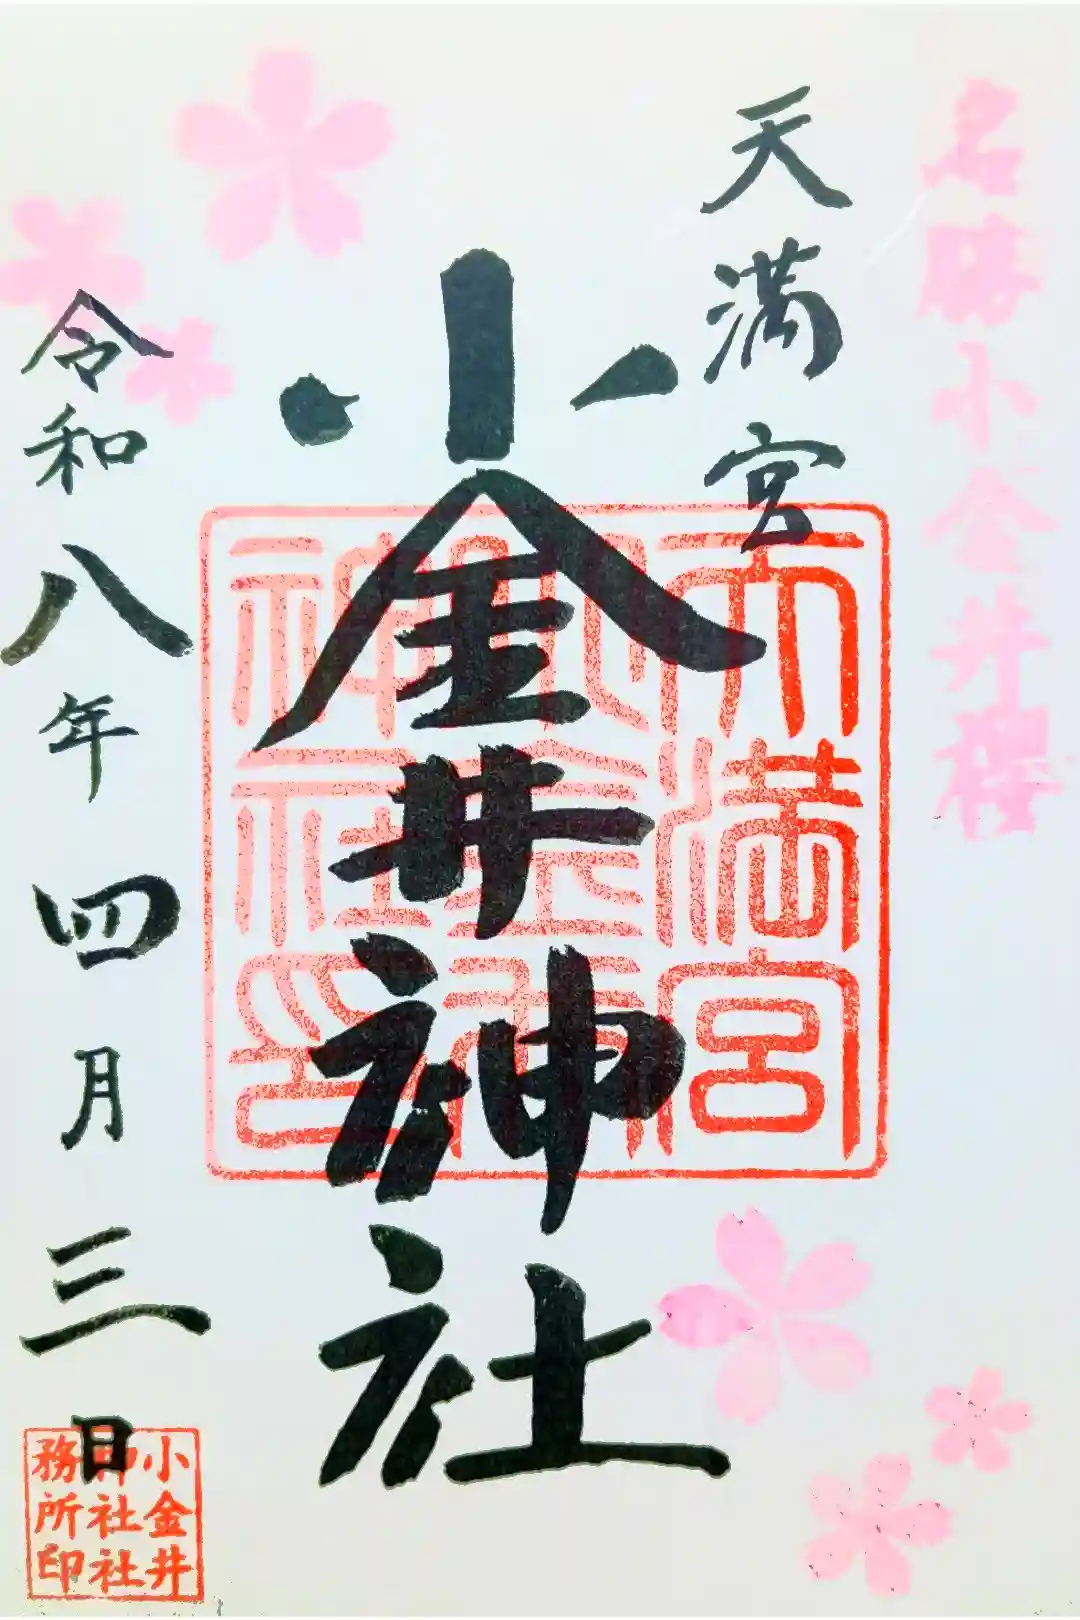 名勝小金井櫻
天満宮
小金井神社
令和八年四月三日
天満宮
小金井
神社印
小金井
神社社
務所印